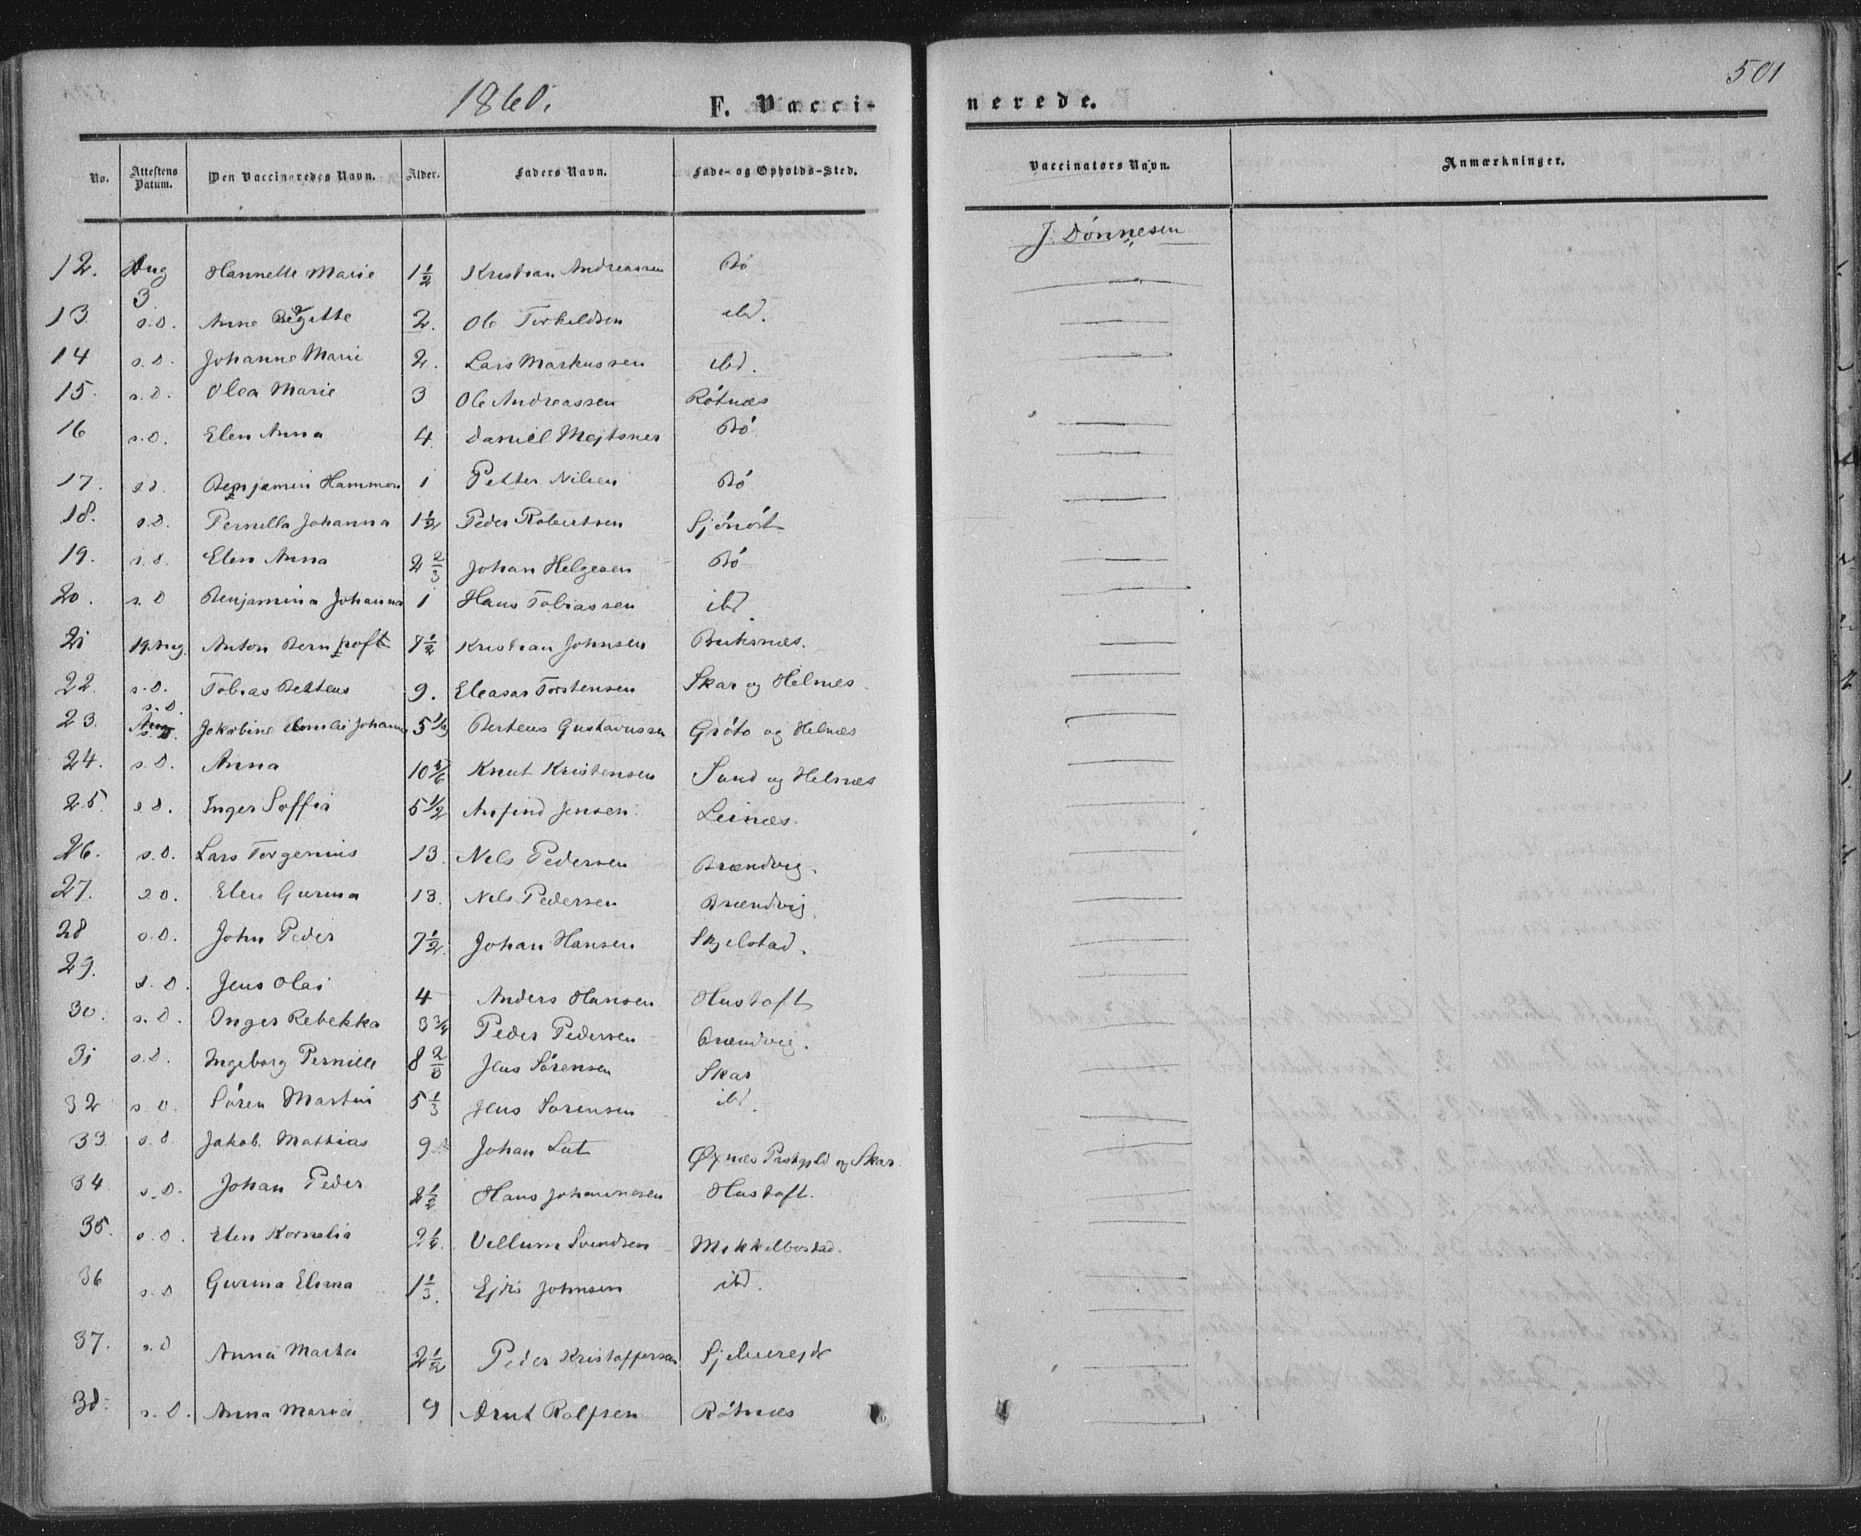 1860. F. Vacci- nerede. 501
No. Attestens Datum. Den Vaccineredes Navn. Alder. Faders Navn. Føde- og Opholds-Sted. Vaccinators Navn. Anmærkninger.
J. Dönnesen
12. Aug 3 Hannette Marie 1 1/2 Kristian Andreassen Bö
13 s.D. Anne Begitte 2. Ole Torkildsen ibd.
14 s.D. Johanne Marie 2. Lars Markussen ibd.
15. s.D. Olea Marie 3 Ole Andreassen Rötnæs
16 s.D. Elen Anna 4. Daniel Mejtsner Bö
17. s.d. Benjamin Hammon 1 Petter Nilsen Bö
18. s.D. Pernella Johanna 1 1/2 Peder Robertsen Sjönöst
19. s.d. Elen Anna 2 2/3 Johan Helgesen Bö
20. s.D Benjamina Johanna 1 Hans Tobiassen ibd
21 19 Aug. Anton Bernhoft 7 1/2 Kristian Johnsen Buksnæs.
22. s.D. Tobias Berteus 9. Eleasar Torstensen Skar og Helnæs.
23. s.D. Jakobine Emilie Johanna 5 1/3 Berteus Gustavussen Gröto og Helnæs
24. s.D. Anna 10 5/6 Knut Kristensen Sund og Helnæs
25. s.d. Inger Soffia 5 1/2 Arfind Jensen Leinæs.
26. s.D. Lars Torgenius 13. Nels Pedersen Brændvig.
27. s.D. Elen Gurina 13. Nels Pedersen Brændvig.
28 s.D. John Peder 7 1/2 Johan Hansen Skjelstad.
29. s.D. Jens Olai 4 Anders Hansen Hustoft
30. s.D. Inger Rebekka 3 3/4 Peder Pedersen Brændvig.
31 s.D. Ingeborg Pernille 8 2/3 Jens Sörensen Skar
32 s.D. Sören Martin 5 1/3 Jens Sörensen ibd.
33. s.d. Jakob Mathias 9 Johan Lut Øxnæs Prstgjld og Skar.
34 s.D. Johan Peder 2 1/2 Hans Johannesen Hustoft.
35. s.D. Elen Kornelia 2 1/4 Villum Svendsen Mikkelbostad.
36 s.D Gurina Elema 1 1/3. Ejdis Johnsen ibd.
37. s.D Anna Marta 2 1/2 Peder Kristoffersen
38. s.D. Anna Maria 9 Arnt Rolfsen Rötnæs